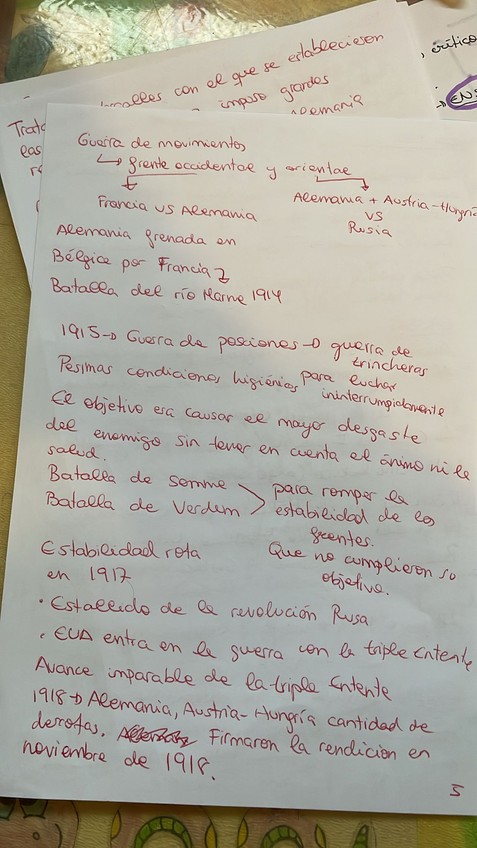 crítico
ENS
con el que se establecieron
impuso grandes
Alemania
Guerra de movimientos
↳ frente occidental y oriental
Francia VS Alemania
Alemania + Austria-Hungría
VS
Rusia
Alemania frenada en
Bélgica por Francia
Batalla del río Marne 1914
1915→ Guerra de posciones → guerra de
trincheras
Pesimas condiciones higiénias para luchar
ininterrumpidamente
El objetivo era causar el mayor desgaste
del enemigo sin tener en cuenta el ánimo ni la
salud.
Batalla de Somme
Batalla de Verdum
para romper la
estabilidad de los
frentes.
Que no cumplieron so
objetivo.
Estabilidad rota
en 1917
· Estallido de la revolución Rusa
· EUA entra en la guerra con la triple Entente
Avance imparable de la triple Entente
1918→ Alemania, Austria-Hungría cantidad de
derrotas. Firmaron la rendición en
noviembre de 1918.
5